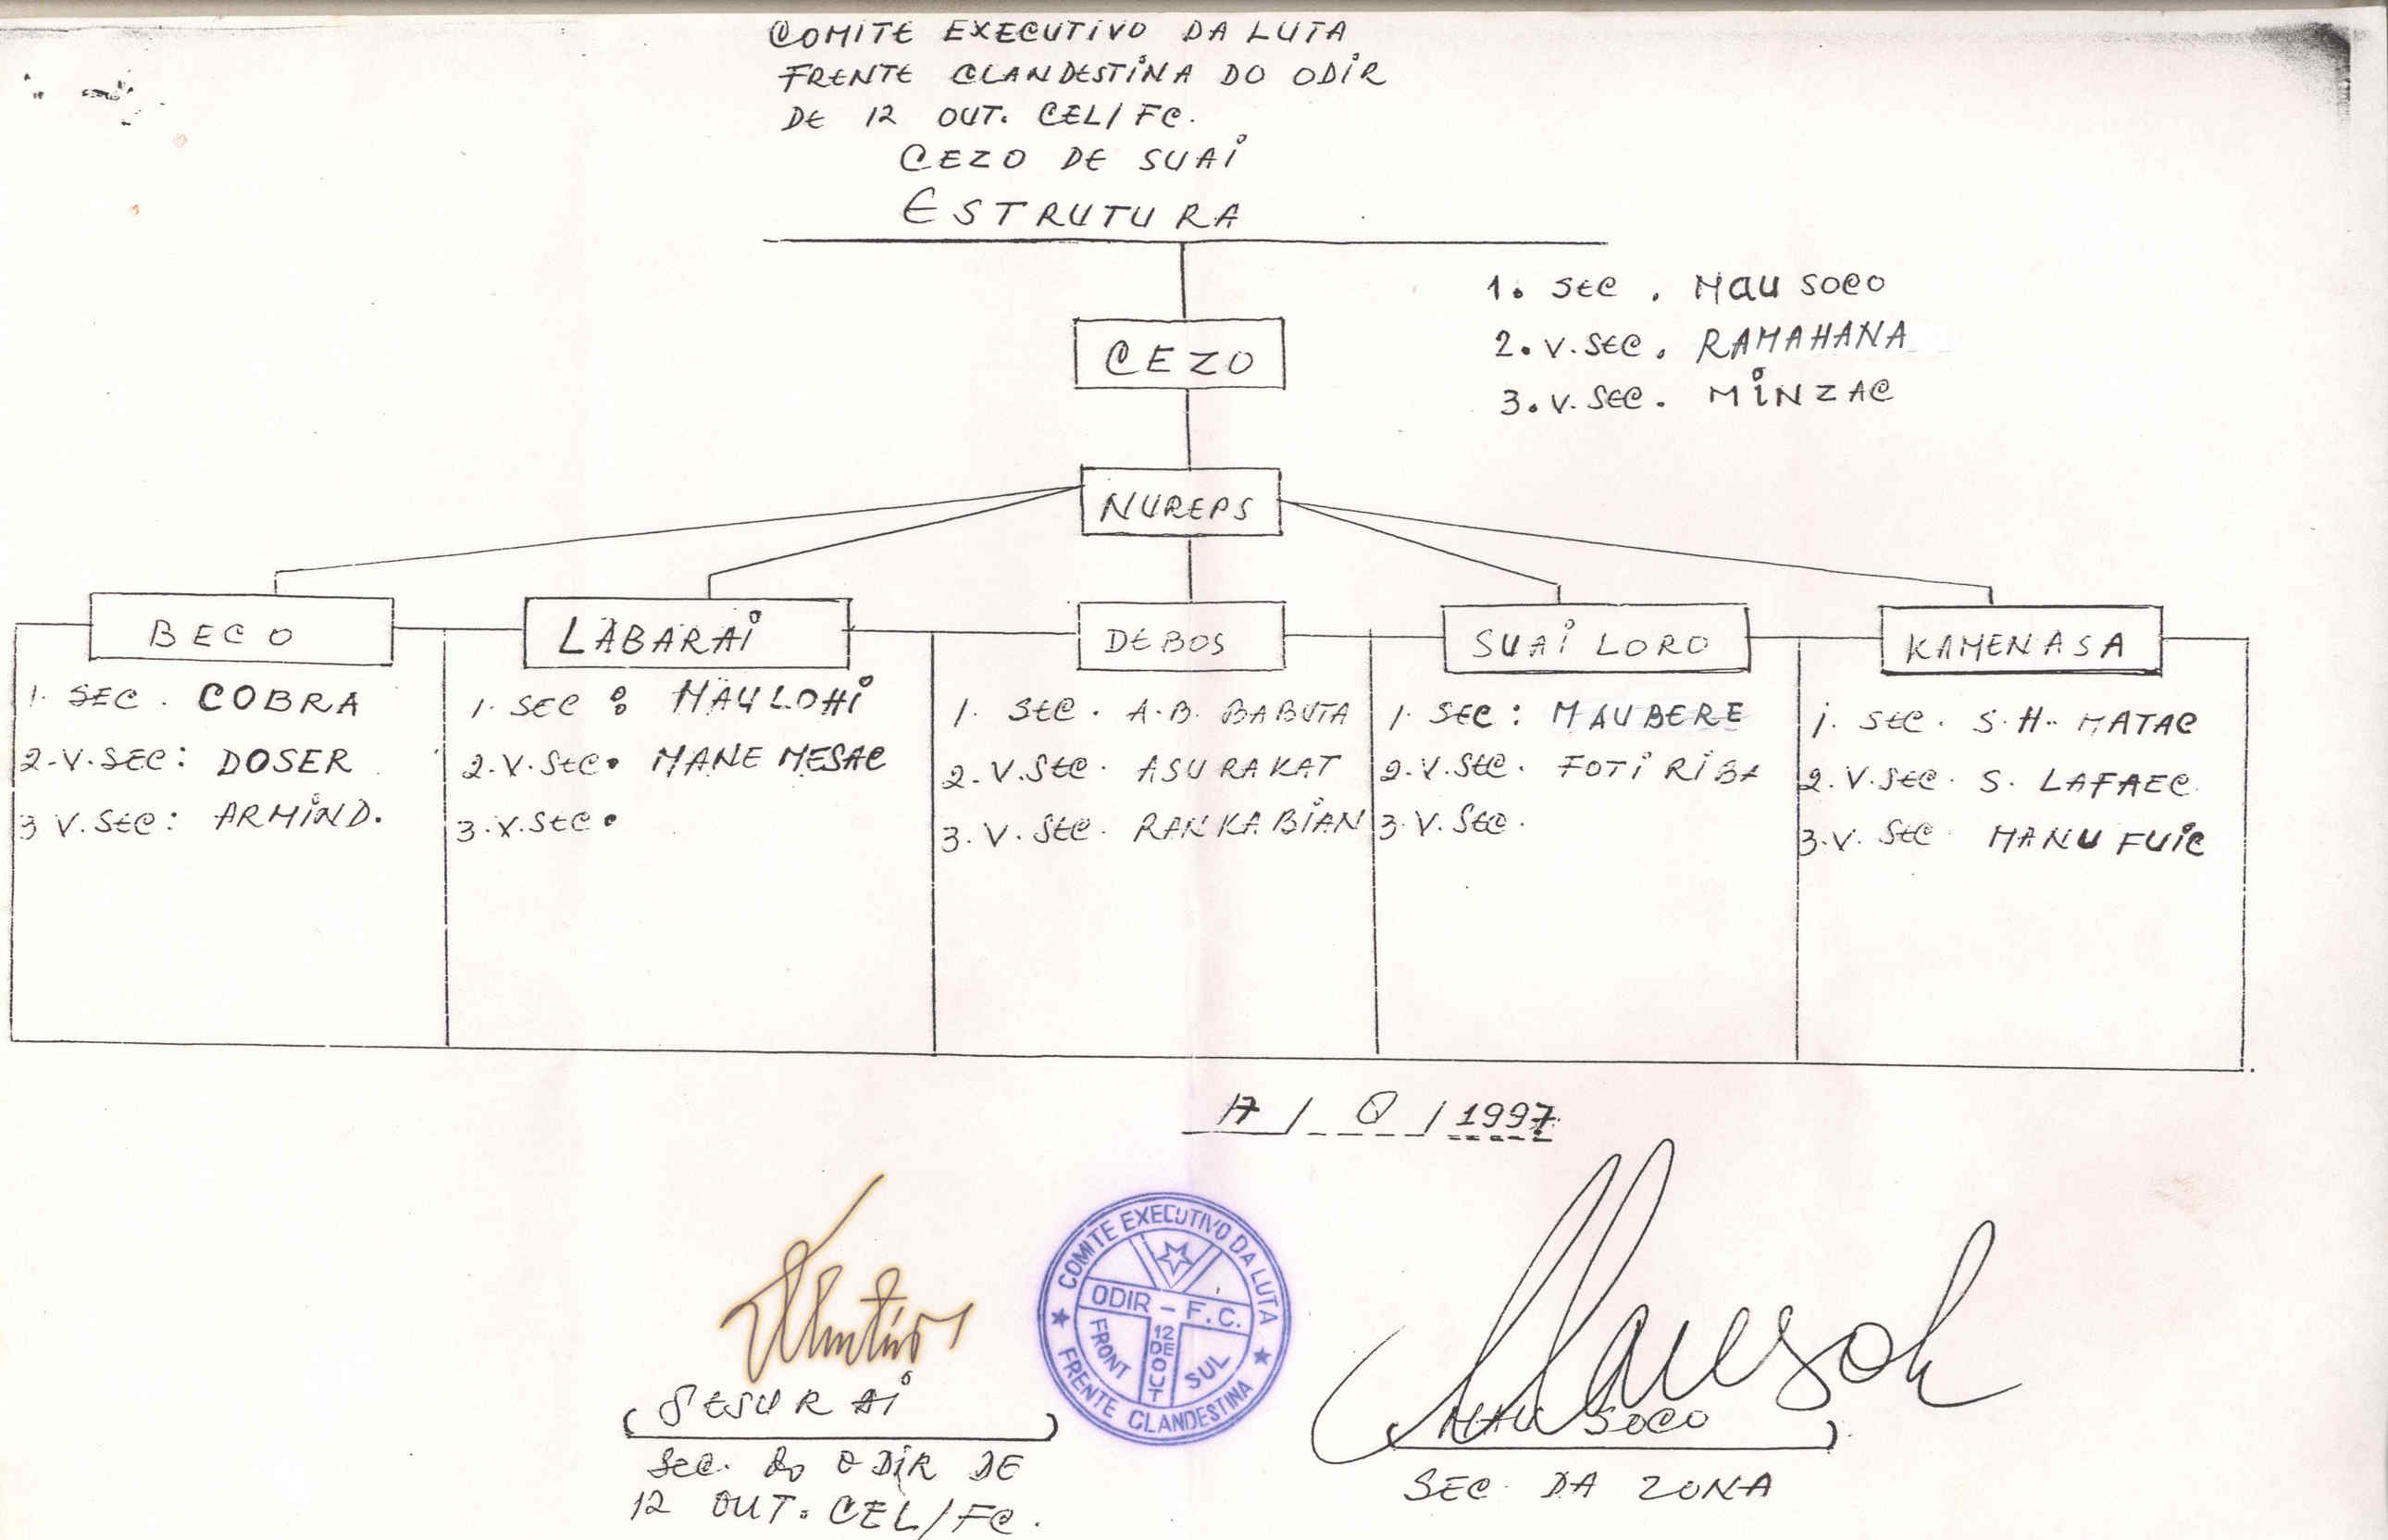 COMITE EXECUTIVO DA LUTA
FRENTE CLANDESTINA DO ODIR
DE 12 OUT. CEL/FC.
CEZO DE SUAI
ESTRUTURA
1. SEC. MAU SOCO
2. V. SEC. RAMAHANA
3. V. SEC. MINZAC
CEZO
NUREPS
BECO
1. SEC. COBRA
2. V. SEC: DOSER
3 V. SEC: ARMIND.
LABARAI
1. SEC: MAULOHI
2. V. SEC. MANE MESAC
3. V. SEC.
DEBOS
1. SEC. A.B. BABUTA
2. V. SEC. ASURAKAT
3. V. SEC. RAN KA BIAN
SUAI LORO
1. SEC: MAUBERE
2. V. SEC. FOTI RIBA
3. V. SEC.
KAMENASA
1. SEC. S.H. MATAC
2. V. SEC. S. LAFAEC
3. V. SEC MANU FUIC
17 / / 1997
COMITE EXECUTIVO DA LUTA
ODIR - F.C.
FRONT SUL
12 DE OUT
FRENTE CLANDESTINA
(SESURAI)
SEC. DO ODIR DE
12 OUT. CEL/FC.
(MAU SOCO)
SEC. DA ZONA